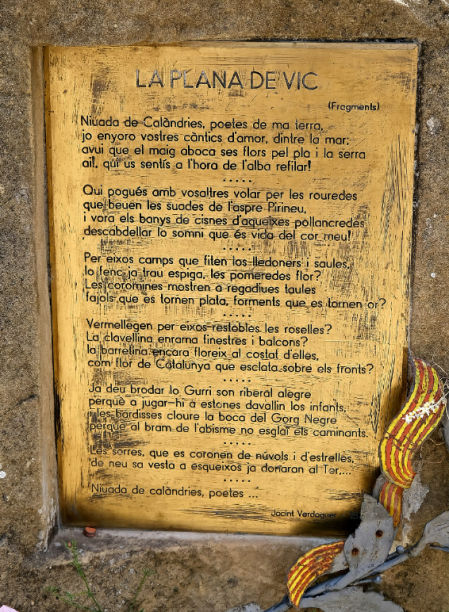 LA PLANA DE VIC
(Fragments)
Niuada de Calàndries, poetes de ma terra,
jo enyoro vostres càntics d'amor, dintre la mar;
avui que el maig aboca ses flors pel pla i la serra
ai!, qui us sentís a l'hora de l'alba refilar!
.....
Qui pogués amb vosaltres volar per les rouredes
que beuen les suades de l'aspre Pirineu,
i vora els banys de cisnes d'aqueixes pollancredes
descabdellar lo somni que és vida del cor meu!
.....
Per eixos camps que fiten los lledoners i saules,
lo fenc ja trau espiga, les pomeredes flor?
Les coromines mostren a regadiues taules
fajols que es tornen plata, forments que es tornen or?
.....
Vermellegen per eixos restobles les roselles?
La clavellina enrama finestres i balcons?
la barretina encara floreix al costat d'elles,
com flor de Catalunya que esclata sobre els fronts?
.....
Ja deu brodar lo Gurri son riberal alegre
perquè a jugar-hi a estones davallin los infants,
i les bardisses cloure la boca del Gorg Negre
perquè al bram de l'abisme no esglaï els caminants.
.....
Les serres, que es coronen de núvols i d'estrelles,
de neu sa vesta a esqueixos ja donaran al Ter,...
.....
Niuada de calàndries, poetes ...
Jacint Verdaguer